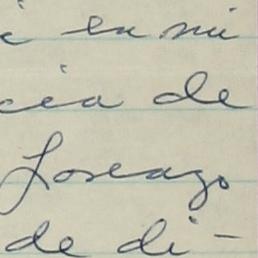 i en mi
cia de
Lorenzo
de di-